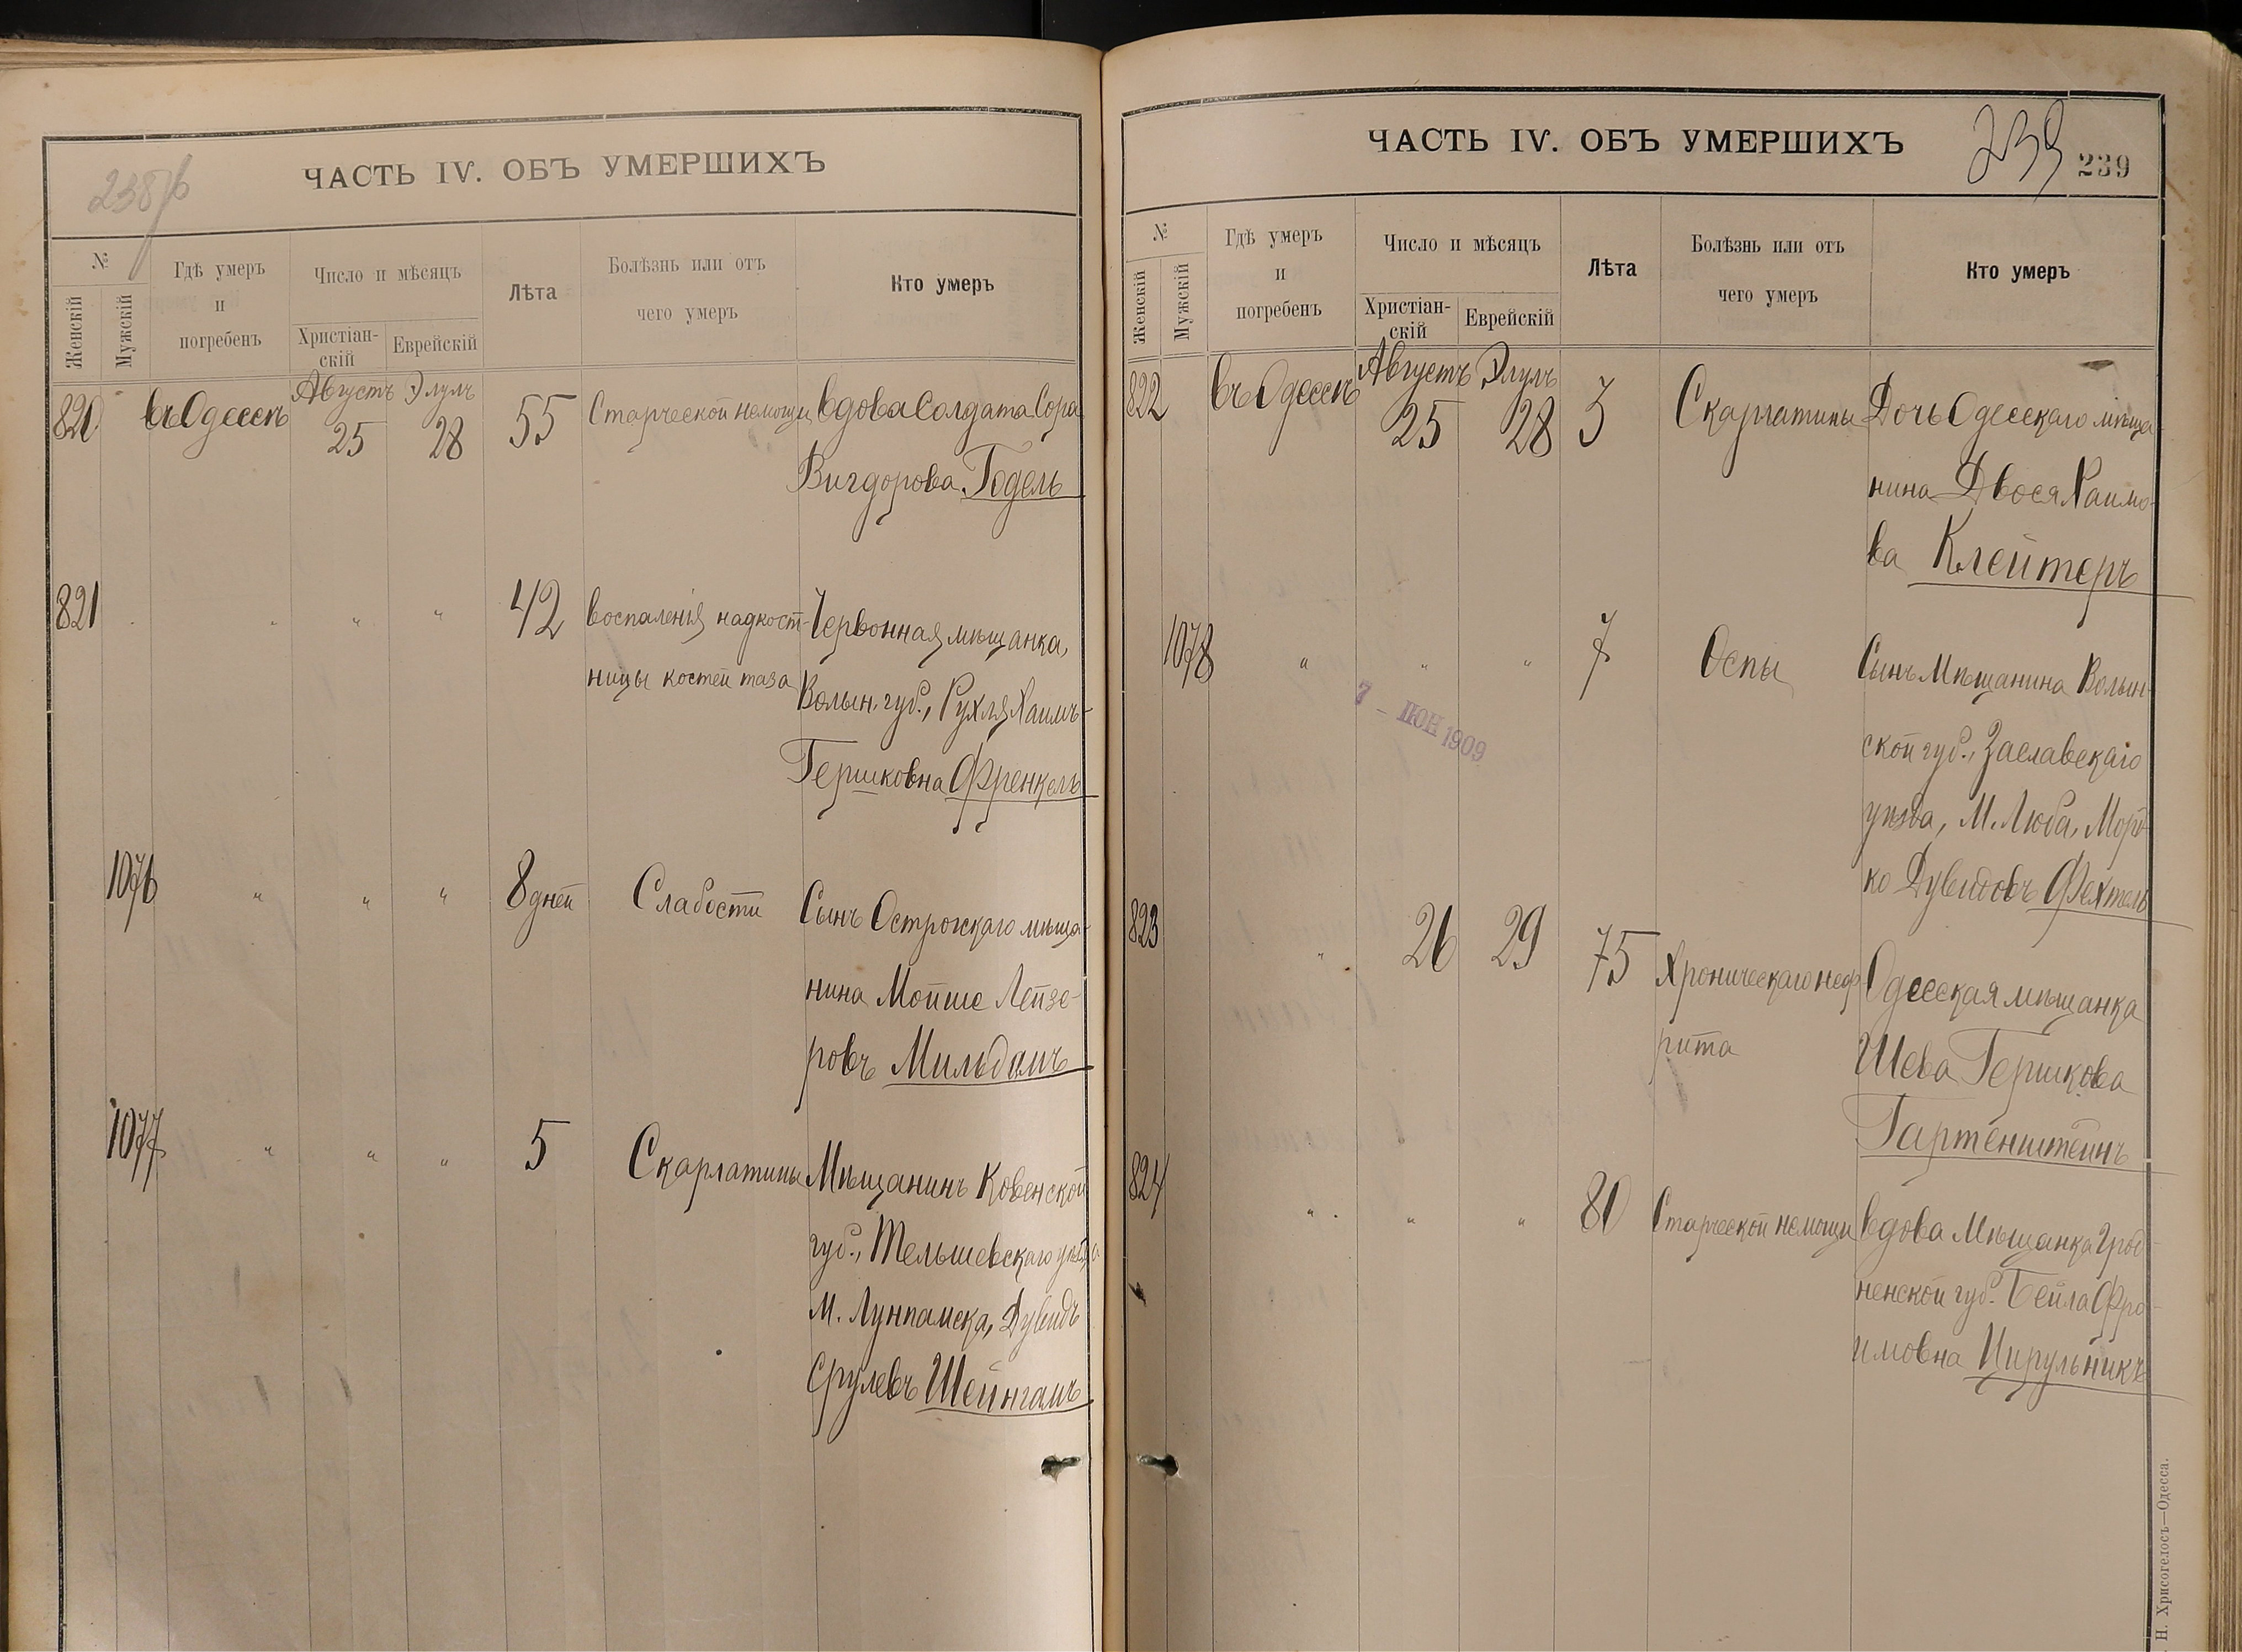 238/б
ЧАСТЬ IV. ОБЪ УМЕРШИХЪ
№
Женскій
Мужскій
Гдѣ умеръ
и
погребенъ
Число и мѣсяцъ
Христіан-
скій
Еврейскій
Лѣта
Болѣзнь или отъ
чего умеръ
Кто умеръ
820 въ Одессѣ Августъ 25 Элулъ 28 55 Старческой немощи Вдова Солдата Сора
Вигдорова Годель
821 " " " 42 Воспаленія надкост- Червонная мѣщанка,
ницы костей таза Волын. губ., Рухля Хаимъ-
Гершковна Френкель
1076 " " " 8 дней Слабости Сынъ Острогскаго мѣща-
нина Мойше Лейзе-
ровъ
1077 " " " 5 Скарлатины Мѣщанинъ Ковенской
губ., Тельшевскаго уѣзда
М. Дувидъ
Срулевъ
ЧАСТЬ IV. ОБЪ УМЕРШИХЪ
239
239
№
Женскій
Мужскій
Гдѣ умеръ
и
погребенъ
Число и мѣсяцъ
Христіан-
скій
Еврейскій
Лѣта
Болѣзнь или отъ
чего умеръ
Кто умеръ
822 въ Одессѣ Августъ 25 Элулъ 28 3 Скарлатины Дочь Одесскаго мѣща-
нина Двося Хаимо-
ва Клейтеръ
1078 " " " 7 Оспы Сынъ Мѣщанина Волын-
ской губ., Заславскаго
уѣзда, М. Морд-
ко Дувидовъ Фехтель
7 - ІЮН 1909
823 " 26 29 75 Хроническаго неф- Одесская мѣщанка
рита Шева Гершкова
Гартенштейнъ
824 " " " 80 Старческой немощи Вдова Мѣщанка Грод-
ненской губ. Бейла Фро-
имовна Цирульникъ
Н. Хрисогелосъ—Одесса.